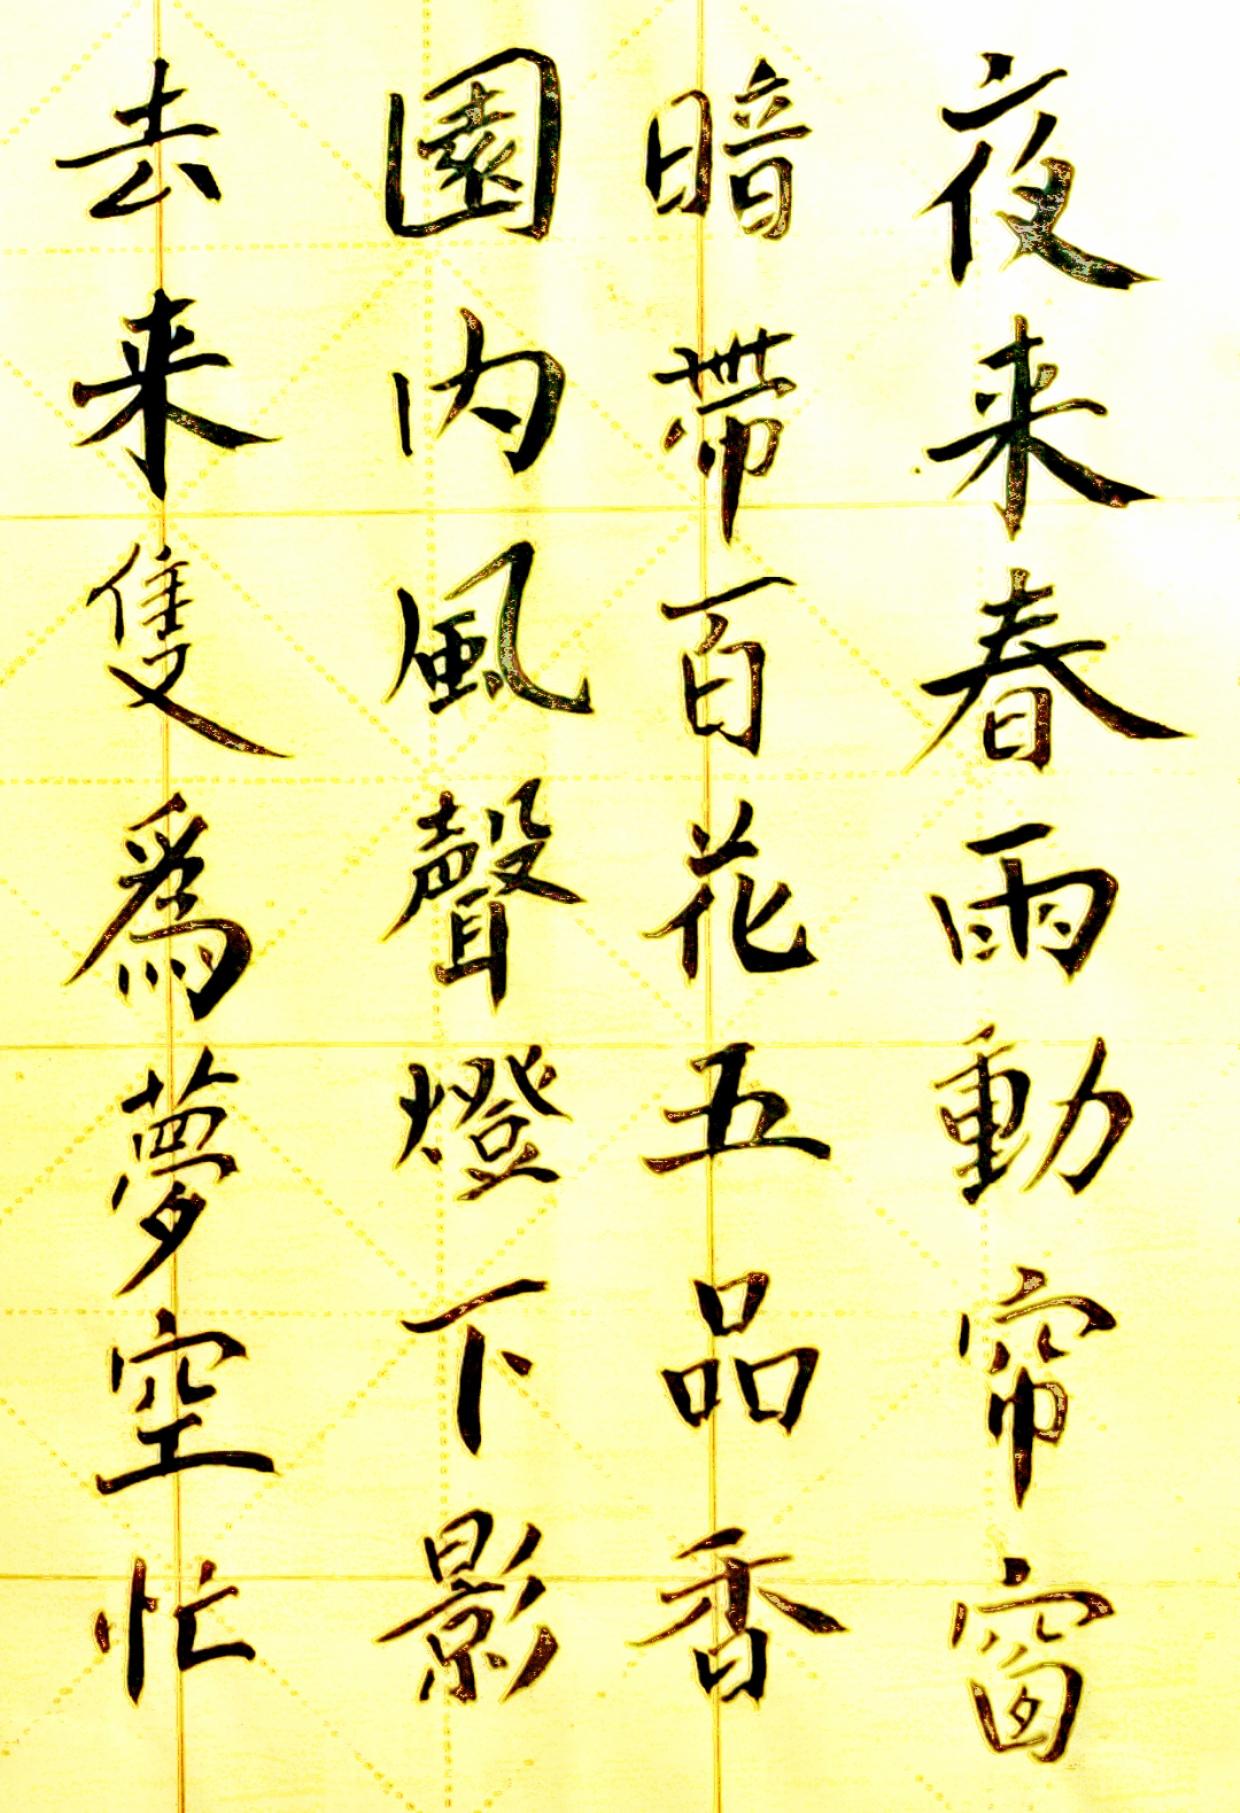 夜来春雨動帘窗
暗帶百花五品香
園内風聲燈下影
去来隻爲夢空忙